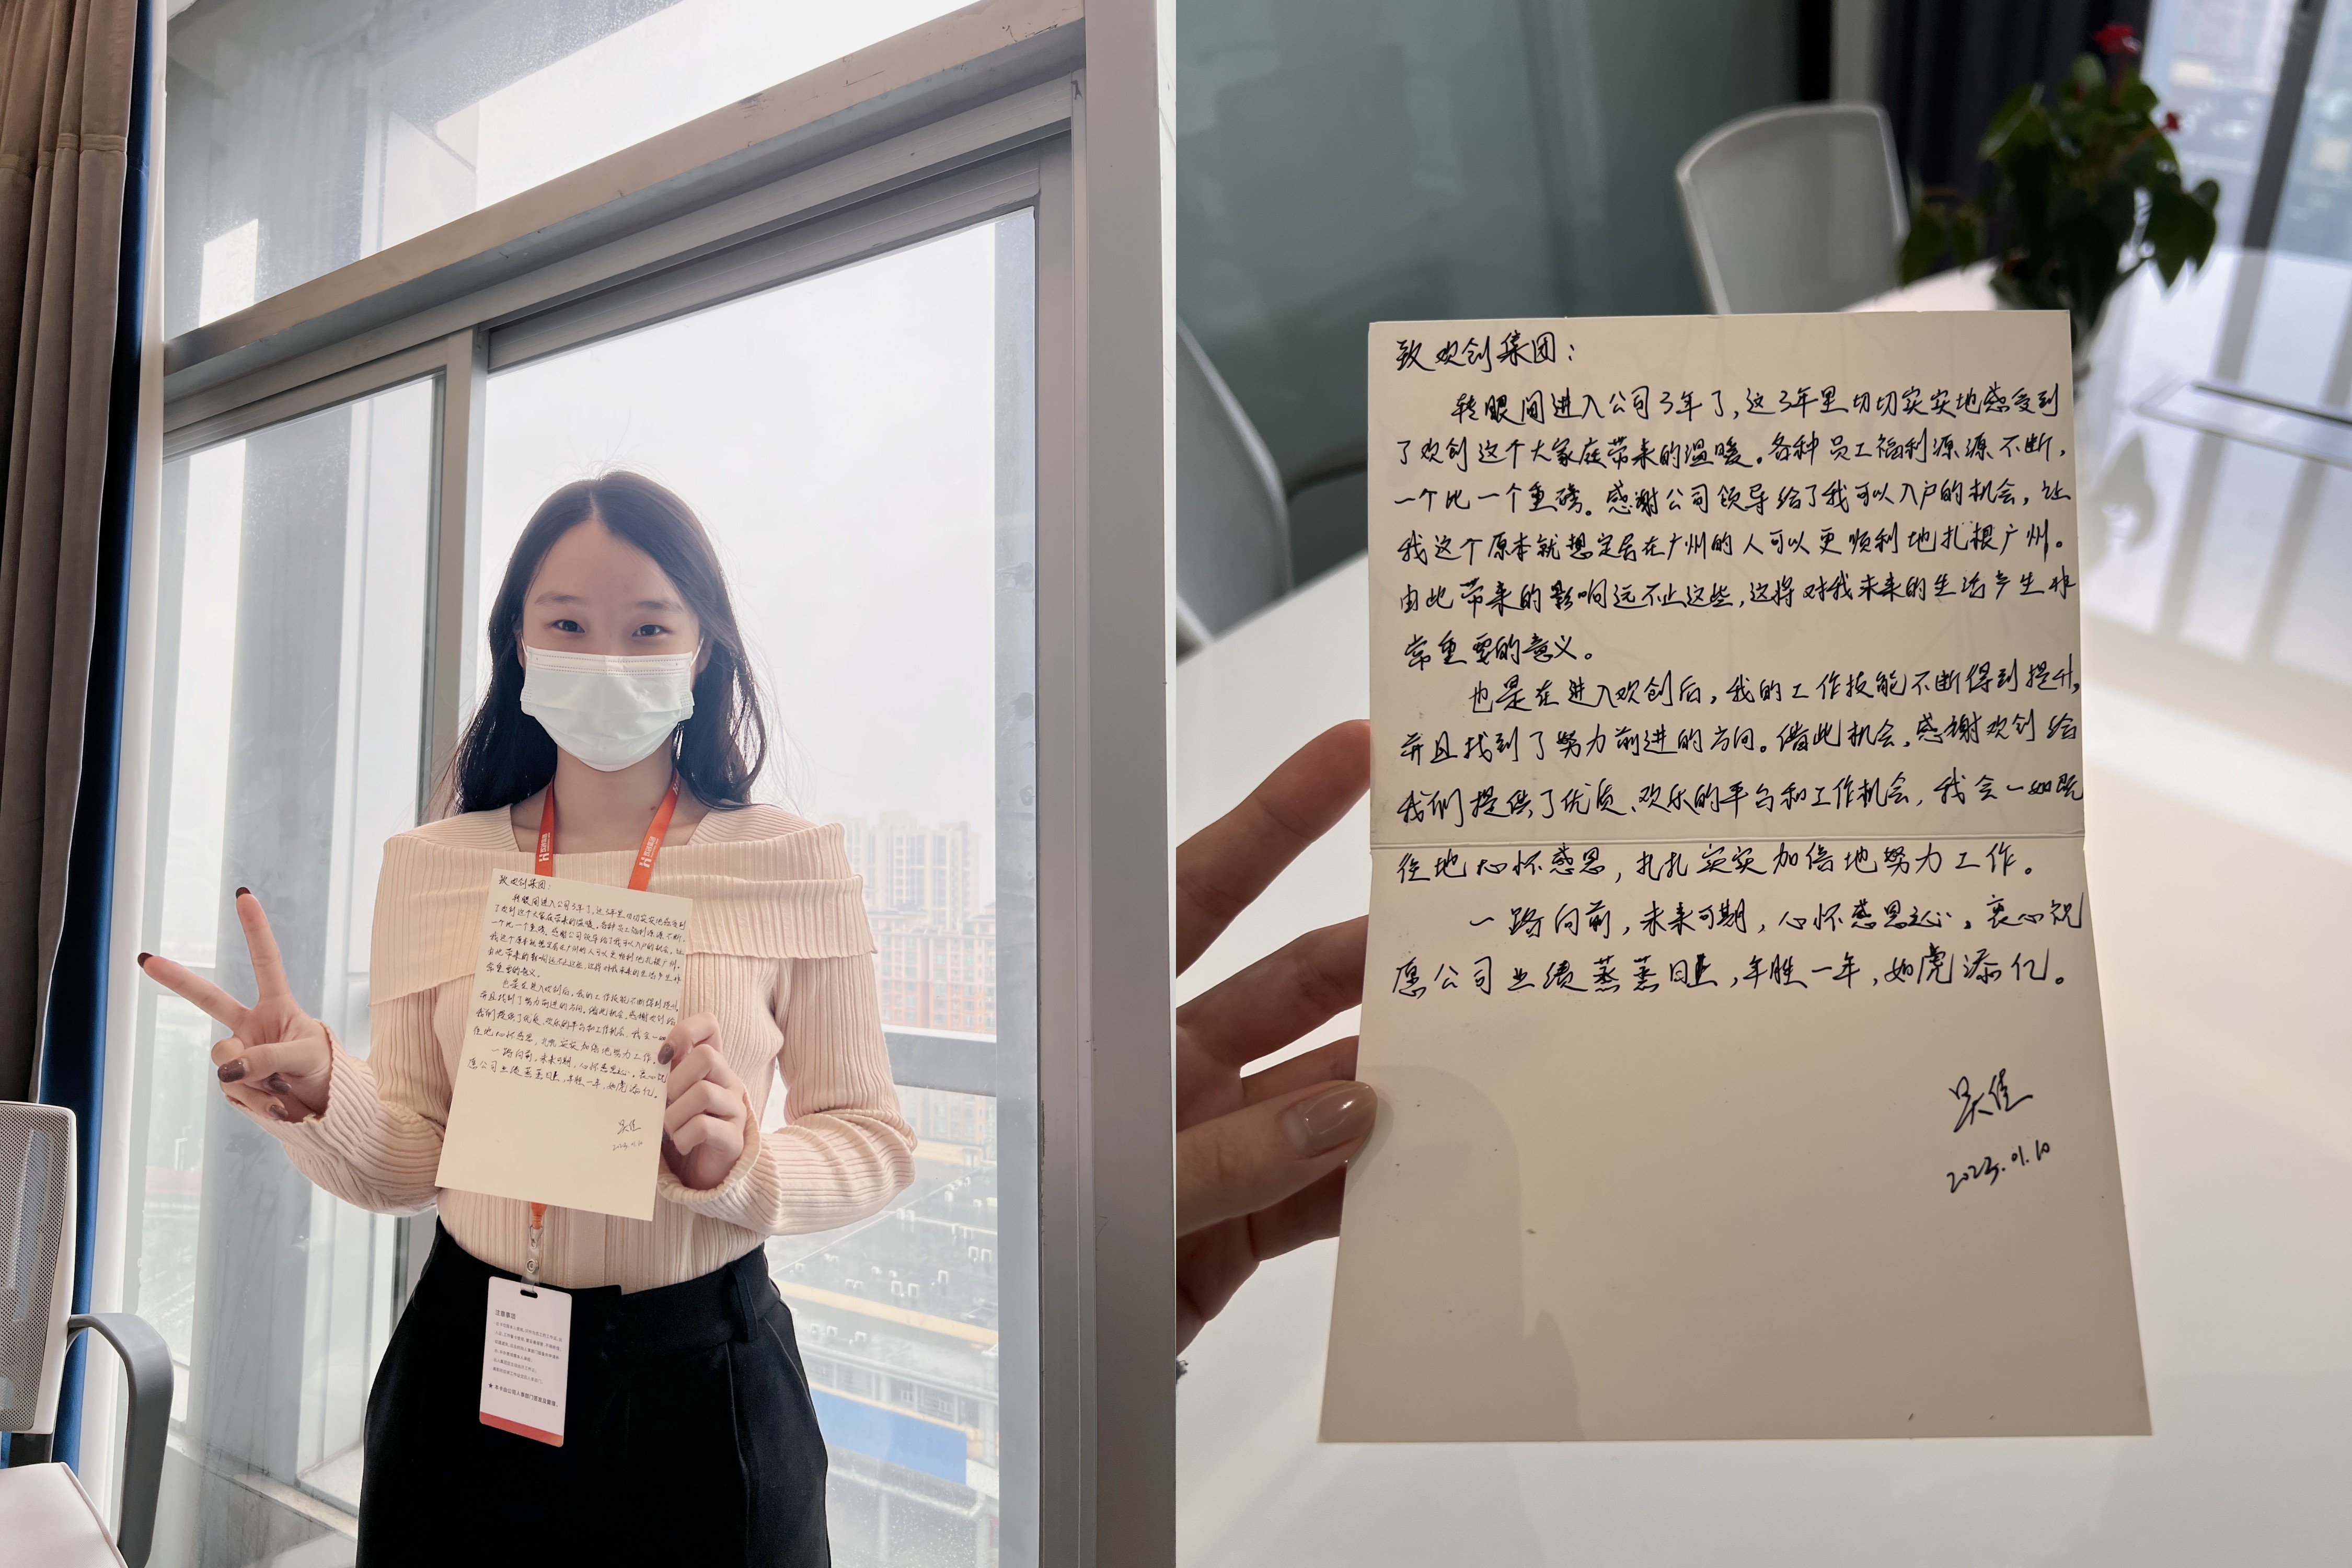 致欢创集团：
转眼间进入公司3年了，这3年里切切实实地感受到
了欢创这个大家庭带来的温暖。各种员工福利源源不断，
一个比一个重磅。感谢公司领导给了我可以入户的机会，让
我这个原本就想定居在广州的人可以更顺利地扎根广州。
由此带来的影响远不止这些，这将对我未来的生活产生非
常重要的意义。
也是在进入欢创后，我的工作技能不断得到提升，
并且找到了努力前进的方向。借此机会，感谢欢创给
我们提供了优质、欢乐的平台和工作机会，我会一如既
往地心怀感恩，扎扎实实加倍地努力工作。
一路向前，未来可期，心怀感恩之心，衷心祝
愿公司业绩蒸蒸日上，年胜一年，如虎添亿。
吴佳
2023.01.10
注意事项